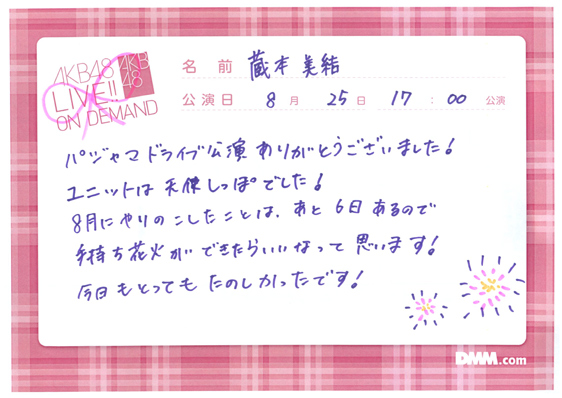 AKB48
LIVE!!
ON DEMAND
AKB
48
名前 蔵本美結
公演日 8月 25日 17:00 公演
パジャマドライブ公演ありがとうございました!
ユニットは天使しっぽでした!
8月にやりのこしたことは、あと6日あるので
手持ち花火ができたらいいなって思います!
今日もとってもたのしかったです!
DMM.com